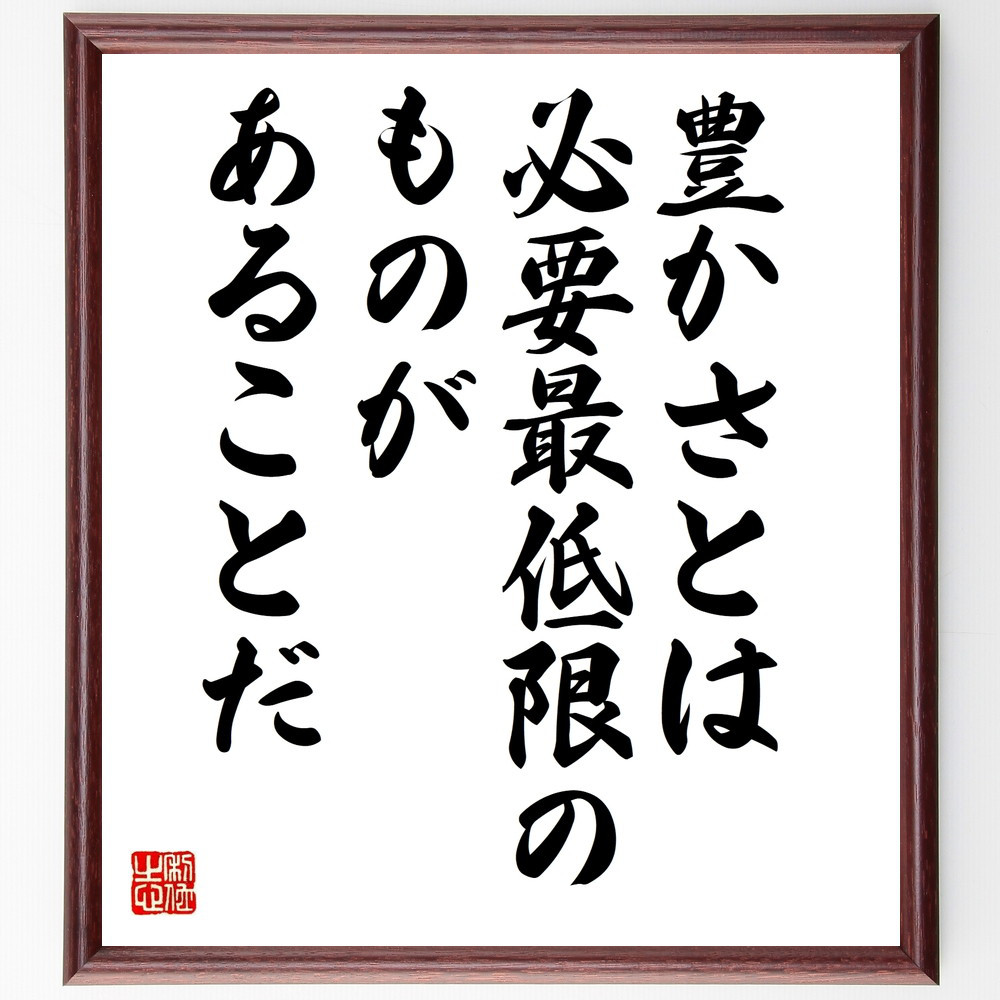 豊かさとは
必要最低限の
ものが
あることだ